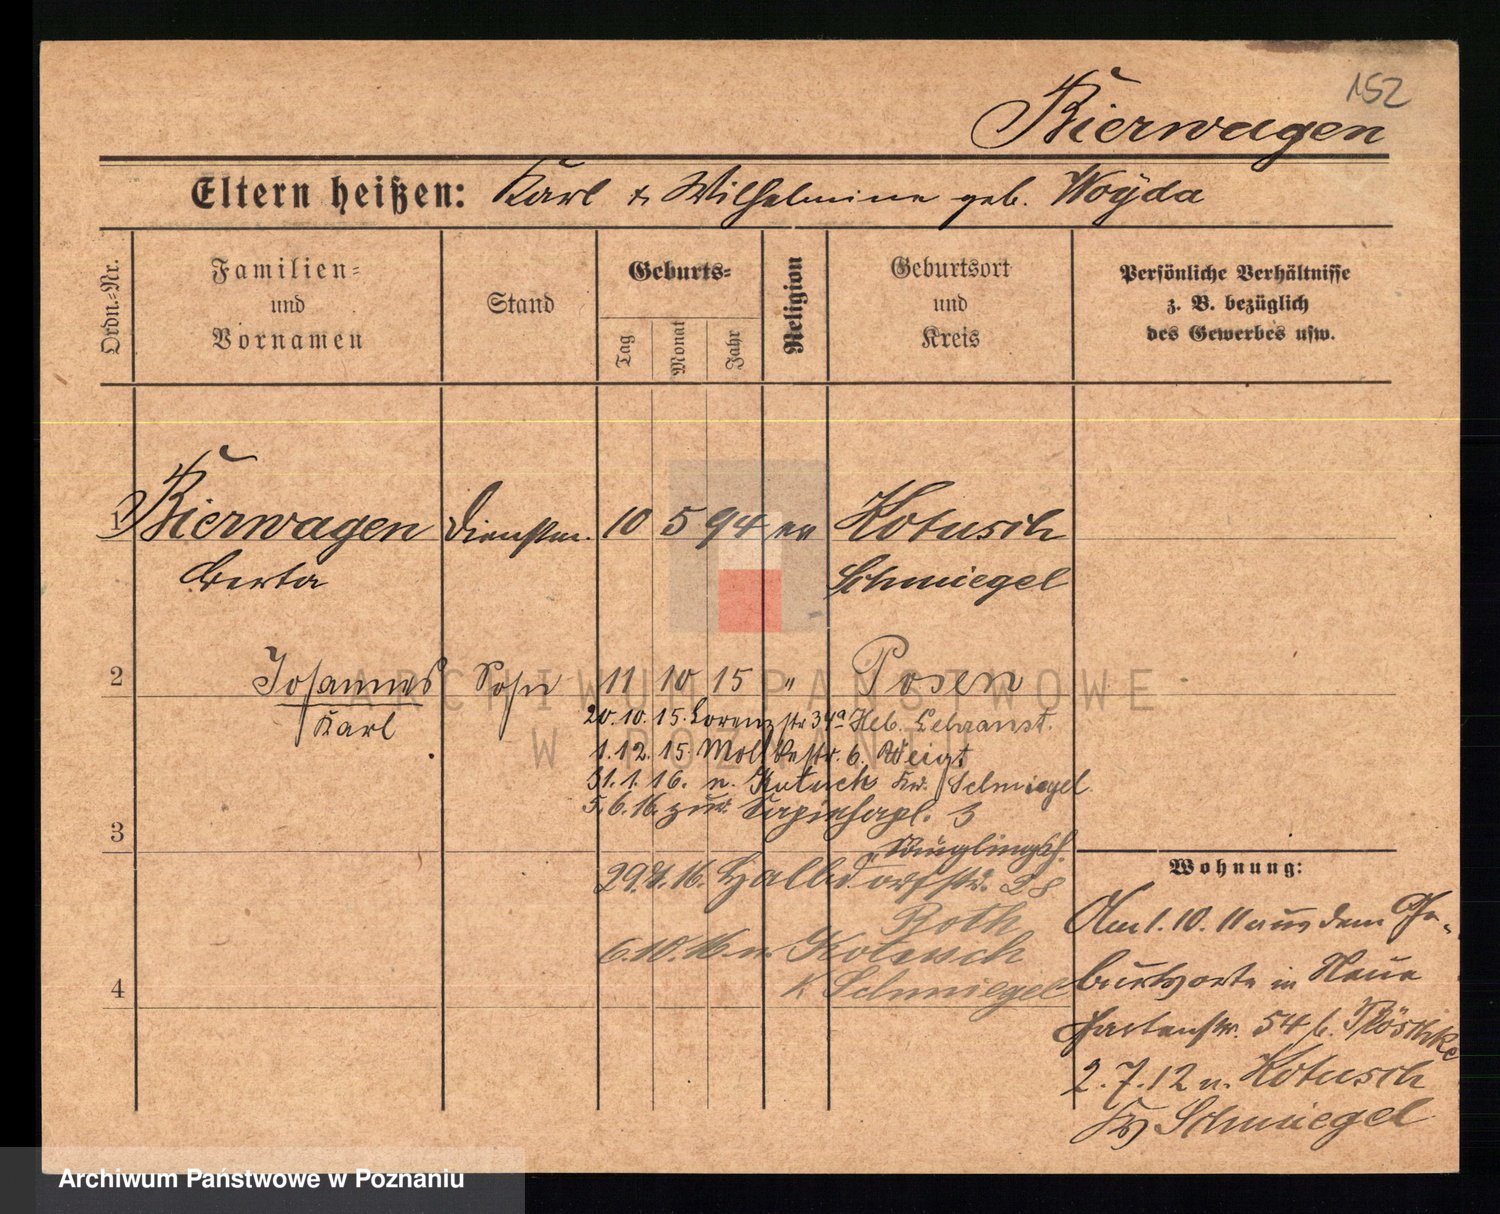 152
Bierwagen
Eltern heißen: Karl & Wilhelmine geb. Woÿda
Ordn.-Nr.
Familien-
und
Vornamen
Stand
Geburts-
Tag
Monat
Jahr
Religion
Geburtsort
und
Kreis
Persönliche Verhältnisse
z. B. bezüglich
des Gewerbes usw.
1 Bierwagen Dienstm. 10 5 94 ev Kotusch
Berta Schmiegel
2 Johannes Sohn 11 10 15 " Posen
Karl
20.10.15. Lorenzstr 34a Heb. Lehranst.
1.12.15. Moltkestr. 6. Weigt
31.1.16. n. Kotusch Kr. Schmiegel
5.6.16. zur. Sapiehapl. 3
3
Säuglingsh.
29.7.16. Halbdorfstr. 28
Roth
6.10.16 n. Kotusch
K Schmiegel
4
Wohnung:
Am 1.10.11 aus dem Ge-
burtsorte in Neue
Gartenstr. 54 b. Röschke
2.7.12 n. Kotusch
Kr Schmiegel
ARCHIWUM PAŃSTWOWE
W POZNANIU
Archiwum Państwowe w Poznaniu